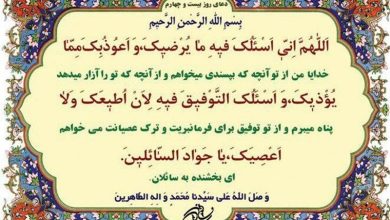 دعای روز بیست و چهارم
بِسْمِ اللَّهِ الرَّحْمنِ الرَّحیمِ
اَللّهُمَّ اِنّی اَسْئَلُکَ فیهِ ما یُرْضیکَ،وَ اَعُوذُبِکَ مِمّا
خدایا من از تو آنچه که بپسندی میخواهم و از آنچه که تو را آزار میدهد
یُؤْذیکَ،وَ اَسْئَلُکَ التَّوْفیقَ فیهِ لِاَنْ اُطیعَکَ وَلا
پناه میبرم و از تو توفیق برای فرمانبریت و ترک عصیانت می خواهم
اَعْصِیَکَ،یا جَوادَ السّائِلینَ.
ای بخشنده به سائلان.
وَ صَلَ اللهُ عَلی سَیِّدِنا مُحَمَّد وَ الِهِ الطّاهِرینَ